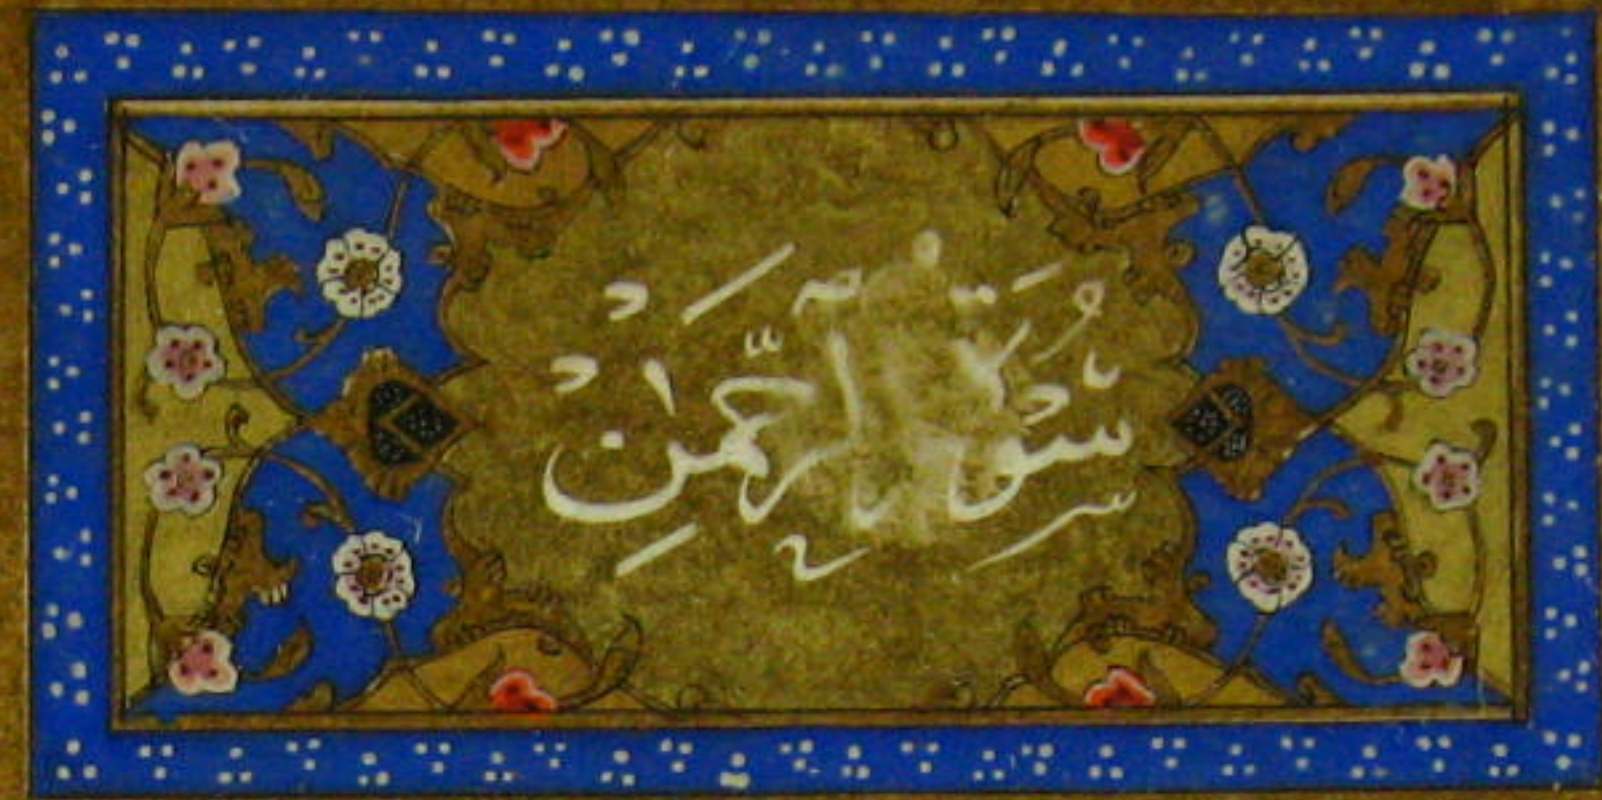 سُورَةُ الرَّحْمٰنِ